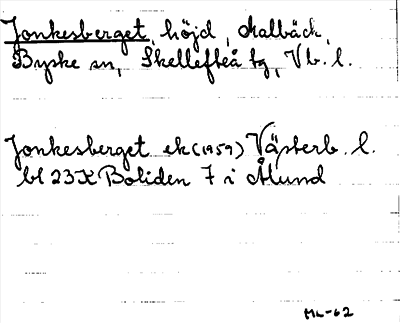 Jonkesberget, höjd, Kalbäck,
Byske sn, Skellefteå tg, Vb. l.
Jonkesberget ek (1959) Västerb. l.
bl 23K Boliden 7 i Ålund
ML-62